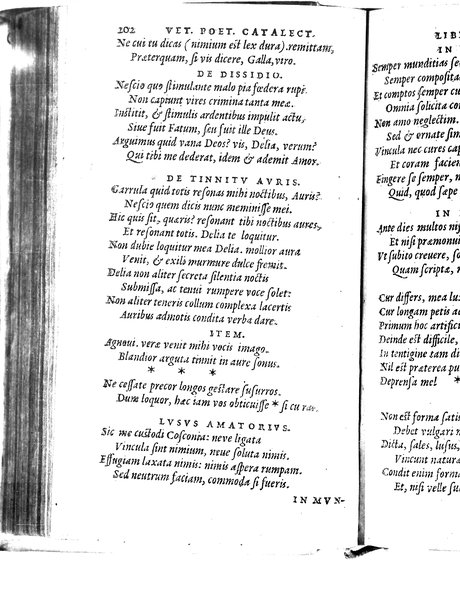 202 VET. POET. CATALECT.
Ne cui tu dicas (nimium est lex dura) remittam,
Præterquam, si vis dicere, Galla, vtro.
DE DISSIDIO.
Nescio quo stimulante malo pia fœdera rupi.
Non capiunt vires crimina tanta meæ.
Institit, & stimulis ardentibus impulit actu,
Siue fuit Fatum, seu fuit ille Deus.
Arguimus quid vana Deos? vis, Delia, verum?
Qui tibi me dederat, idem & ademit Amor.
DE TINNITV AVRIS.
Garrula quid totis resonas mihi noctibus, Auris?
Nescio quem dicis nunc meminisse mei.
Hic quis sit, quæris? resonant tibi noctibus aures,
Et resonant totis. Delia te loquitur.
Non dubie loquitur mea Delia. mollior aura
Venit, & exili murmure dulce fremit.
Delia non aliter secreta silentia noctis
Submissa, ac tenui rumpere voce solet:
Non aliter teneris collum complexa lacertis
Auribus admotis condita verba dare.
ITEM.
Agnoui. veræ venit mihi vocis imago.
Blandior arguta tinnit in aure sonus.
* * *
Ne cessate precor longos gestare susurros.
Dum loquor, hæc iam vos obticuisse * si cu
LVSVS AMATORIVS.
Sic me custodi Cosconia: neve ligata
Vincula sint nimium, neue soluta nimis.
Effugiam laxata nimis: nimis aspera rumpam.
Sed neutrum faciam, commoda si fueris.
IN MVN-
LIB
IN
Semper munditias se
Semper composita
Et comptos semper cu
Omnia solicita co
Non amo neglectim.
Sed & ornate sim
Vincula nec cures cap
Et coram facien
Fingere se semper, n
Quid, quod sæpe
IN
Ante dies multos ni
Et nisi præmonui
Vt subito creuere, so
Quam scripta, n
Cur differs, mea lux
Cur longam petis
Primum hoc artific
Deinde est difficile,
In tentigine tam di
Nil est præterea pu
Deprensa mel *
Non est forma satis
Debet vulgari
Dicta, sales, lusus,
Vincunt natura
Condit enim forma
Et, nisi velle su